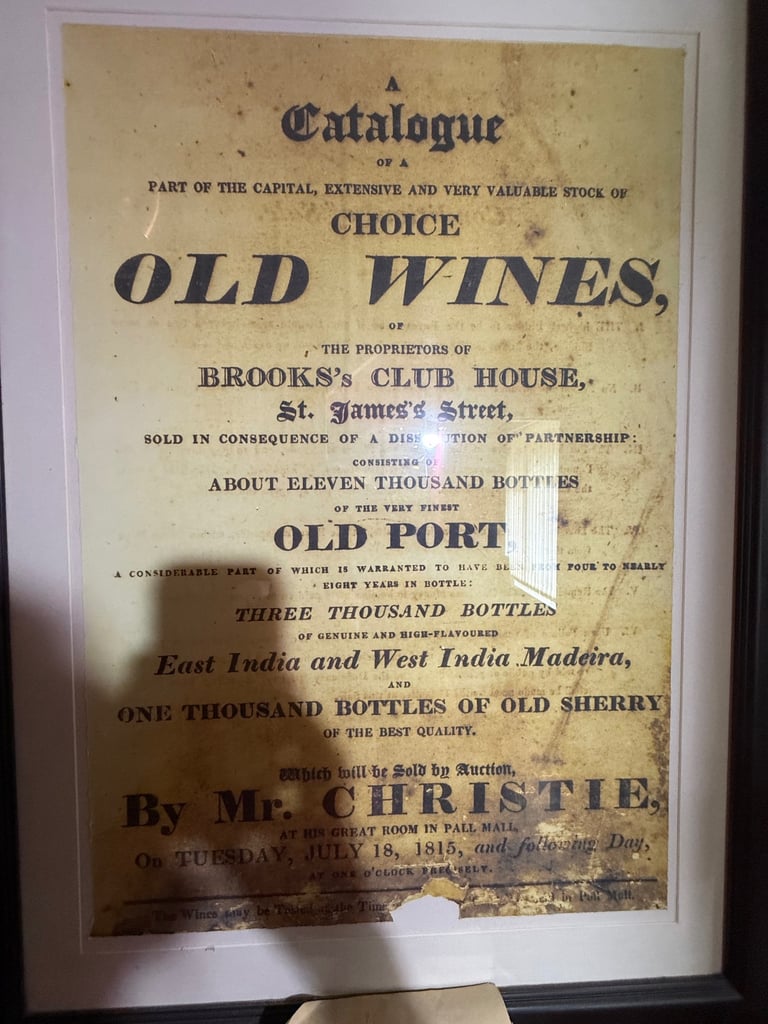 A
Catalogue
OF A
PART OF THE CAPITAL, EXTENSIVE AND VERY VALUABLE STOCK OF
CHOICE
OLD WINES,
OF
THE PROPRIETORS OF
BROOKS's CLUB HOUSE,
St. James's Street,
SOLD IN CONSEQUENCE OF A DISSOLUTION OF PARTNERSHIP:
CONSISTING OF
ABOUT ELEVEN THOUSAND BOTTLES
OF THE VERY FINEST
OLD PORT,
A CONSIDERABLE PART OF WHICH IS WARRANTED TO HAVE BEEN FROM FOUR TO NEARLY
EIGHT YEARS IN BOTTLE:
THREE THOUSAND BOTTLES
OF GENUINE AND HIGH-FLAVOURED
East India and West India Madeira,
AND
ONE THOUSAND BOTTLES OF OLD SHERRY
OF THE BEST QUALITY.
Which will be Sold by Auction,
By Mr. CHRISTIE,
AT HIS GREAT ROOM IN PALL MALL,
On TUESDAY, JULY 18, 1815, and following Day,
AT ONE O'CLOCK PRECISELY.
The Wines may be Tasted at the Time in Pall Mall.